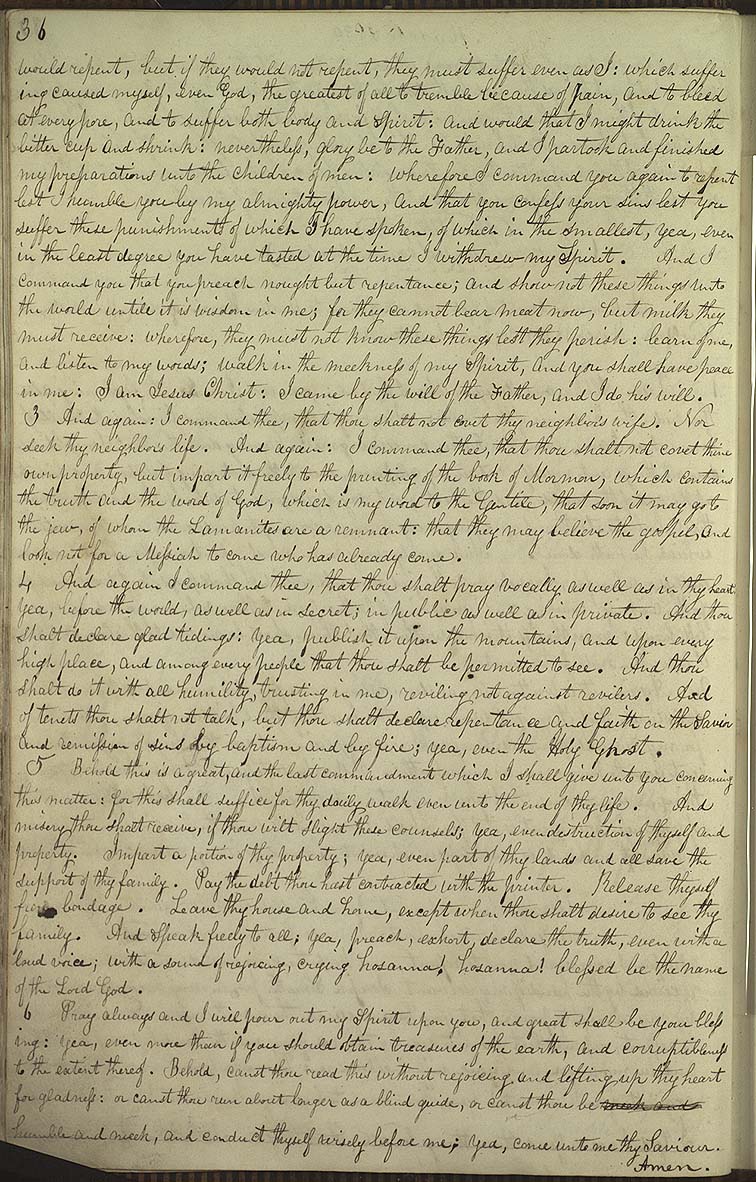 36
would repent, but if they would not repent, they must suffer even as I: which suffer
ing caused myself, even God, the greatest of all to tremble because of pain, and to bleed
at every pore, and to suffer both body and Spirit: and would that I might drink the
bitter cup and shrink: nevertheless, glory be to the Father, and I partook and finished
my preparations unto the children of men: wherefore I command you again to repent
lest I humble you by my almighty power, and that you confess your sins lest you
suffer these punishments of which I have spoken, of which in the smallest, yea, even
in the least degree you have tasted at the time I withdrew my Spirit. And I
command you that you preach nought but repentance; and show not these things unto
the world untile it is wisdom in me; for they cannot bear meat now, but milk they
must receive: wherefore, they must not know these things lest they perish: learn of me,
and listen to my words; walk in the meekness of my Spirit, and you shall have peace
in me: I am Jesus Christ: I came by the will of the Father, and I do his will.
3 And again: I command thee, that thou shalt not covet thy neighbors wife. Nor
seek thy neighbors life. And again: I command thee, that thou shalt not covet thine
own property, but impart it freely to the printing of the book of Mormon, which contains
the truth and the word of God, which is my word to the Gentile, that soon it may go to
the jew, of whom the Lamanites are a remnant: that they may believe the gospel, and
look not for a Messiah to come who has already come.
4 And again I command thee, that thou shalt pray vocally as well as in thy heart:
yea, before the world, as well as in secret; in public as well as in private. And thou
shalt declare glad tidings: yea, publish it upon the mountains, and upon every
high place, and among every people that thou shalt be permitted to see. And thou
shalt do it with all humility, trusting in me, reviling not against revilers. And
of tenets thou shalt not talk, but thou shalt declare repentance and faith on the Savior
and remission of sins by baptism and by fire; yea, even the Holy Ghost.
5 Behold this is a great, and the last commandment which I shall give unto you concerning
this matter: for this shall suffice for thy daily walk even unto the end of thy life. And
misery thou shalt receive, if thou wilt slight these counsels; yea, even destruction of thyself and
property. Impart a portion of thy property; yea, even part of thy lands and all save the
support of thy family. Pay the debt thou hast contracted with the printer. Release thyself
from bondage. Leave thy house and home, except when thou shalt desire to see thy
family. And Speak freely to all; yea, preach, exhort, declare the truth, even with a
loud voice; with a sound of rejoicing, crying hosanna! hosanna! blessed be the name
of the Lord God.
6 Pray always and I will pour out my Spirit upon you, and great shall be your bless
ing: yea, even more than if you should obtain treasures of the earth, and corruptibleness
to the extent thereof. Behold, canst thou read this without rejoicing and lifting up thy heart
for gladness: or canst thou run about longer as a blind guide, or canst thou be meek and
humble and meek, and conduct thyself wisely before me; yea, come unto me thy Saviour.
Amen.